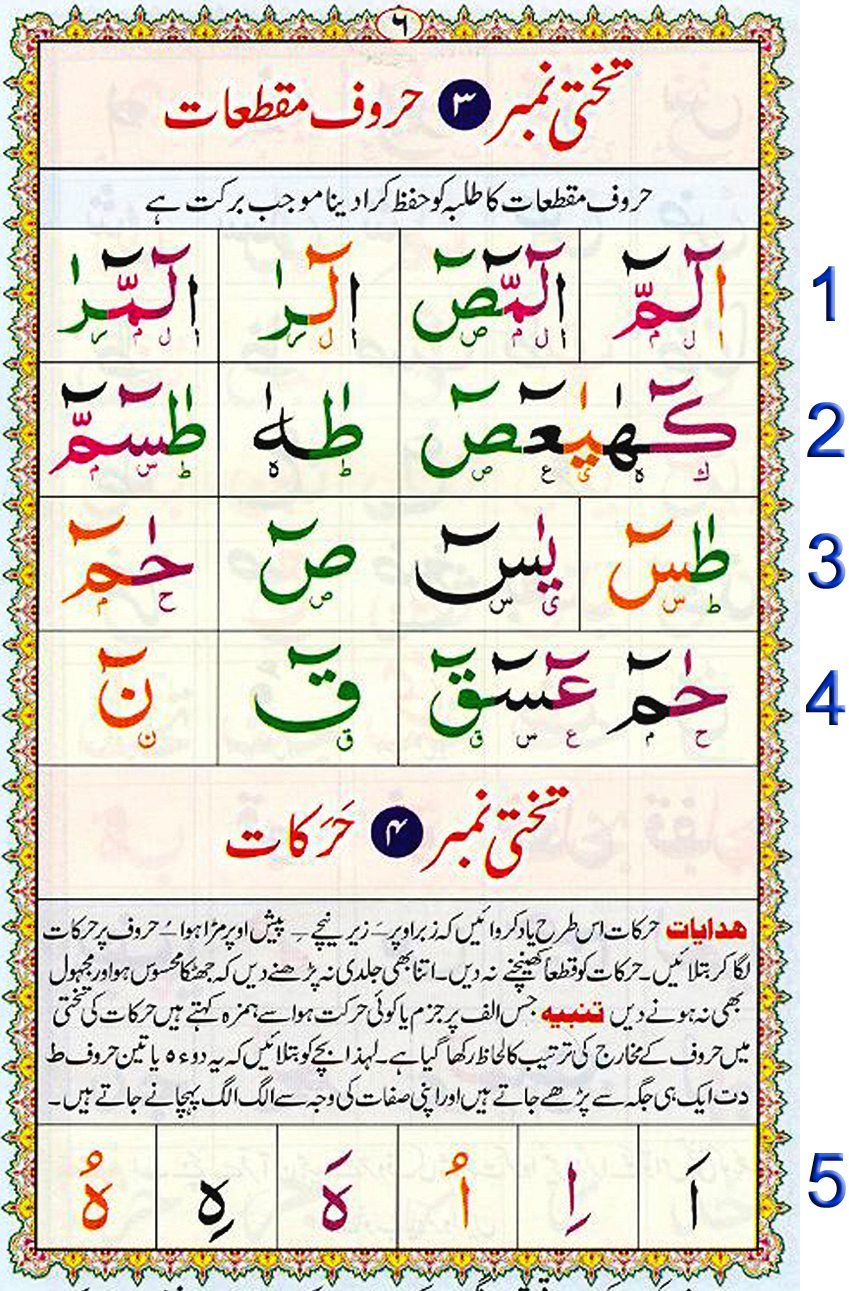 ٦
تختی نمبر ۳ حروف مقطعات
حروف مقطعات کا طلبہ کو حفظ کرا دینا موجب برکت ہے
الٓمّٓ الٓمّٓصٓ الٓرٰ الٓمّٓرٰ 1
ا ل م ا ل م ص ا ل ر ا ل م ر
كٓهٰيٰعٓصٓ طٰهٰ طٰسٓمّٓ 2
ك ه ي ع ص ط ه ط س م
طٰسٓ يٰسٓ صٓ حٰمٓ 3
ط س ي س ص ح م
حٰمٓ عٓسٓقٓ قٓ نٓ 4
ح م ع س ق ق ن
تختی نمبر ۴ حَرَکات
ھدایات حرکات اس طرح یاد کروائیں کہ زبر اوپر ـَ زیر نیچے ـِ پیش اوپر مڑا ہوا ـُ حروف پر حرکات
لگا کر بتلائیں۔ حرکات کو قطعاً کھینچنے نہ دیں۔ اتنا بھی جلدی نہ پڑھنے دیں کہ جھٹکا محسوس ہو اور مجہول
بھی نہ ہونے دیں تنبیه جس الف پر جزم یا کوئی حرکت ہو اسے ہمزہ کہتے ہیں حرکات کی تختی
میں حروف کے مخارج کی ترتیب کا لحاظ رکھا گیا ہے۔ لہذا بچے کو بتلائیں کہ یہ دو ء ہ یا تین حروف ط
د ت ایک ہی جگہ سے پڑھے جاتے ہیں اور اپنی صفات کی وجہ سے الگ الگ پہچانے جاتے ہیں۔
اَ اِ اُ هَ هِ هُ 5